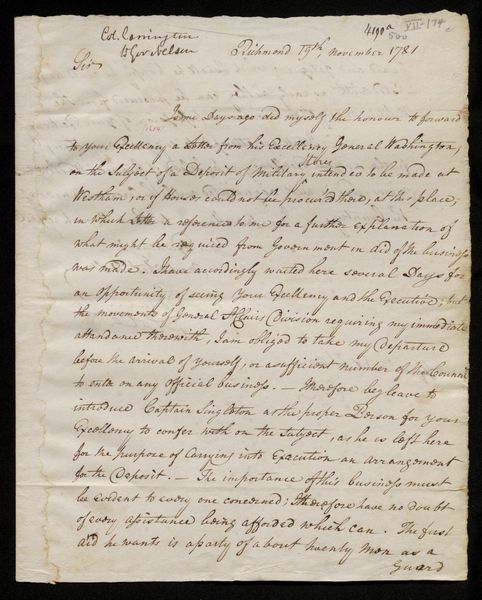 Col. Carrington
to Gov Nelson
4190a
500
VII-174
Sir
Richmond 19th. November 1781
Some Days ago did myself the honour to forward
to your Excellency a Letter from his Excellency General Washington,
on the Subject of a Deposit of Military Stores intended to be made at
Westham, or if Houses could not be procur'd there, at this place;
in which Letter a reference to me for a further explanation of
what might be required from Government in aid of the business
was made. I have accordingly waited here several Days for
an opportunity of seeing your Excellency and the Executive; but
the movements of General St Clairs Division requiring my immediate
attendance therewith, I am obliged to take my Departure
before the arrival of yourself, or a sufficient number of the Council
to enter on any official business. — I therefore beg leave to
introduce Captain Singleton as the proper Person for your
Excellency to confer with on the Subject, as he is left here
for the purpose of carrying into Execution an arrangement
for the Deposit. — The importance of this business must
be evident to every one concerned; I therefore have no doubt
of every assistance being afforded which can. The first
aid he wants is a party of about twenty Men as a
Guard